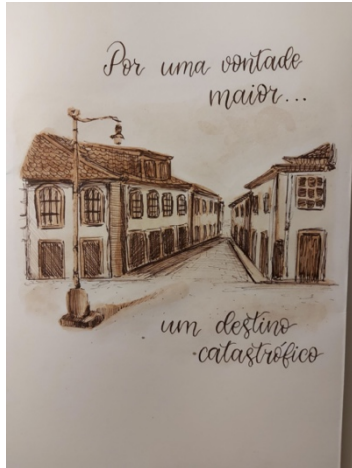 Por uma vontade
maior...
um destino
catastrófico